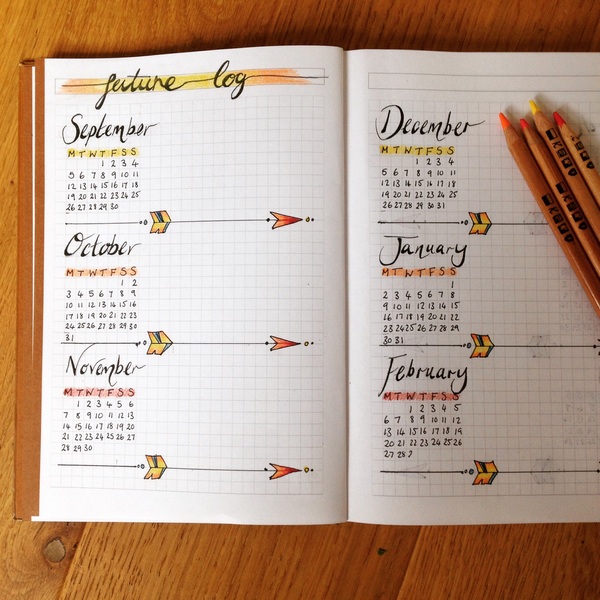 future log
September
M T W T F S S
1 2 3 4
5 6 7 8 9 10 11
12 13 14 15 16 17 18
19 20 21 22 23 24 25
26 27 28 29 30
October
M T W T F S S
1 2
3 4 5 6 7 8 9
10 11 12 13 14 15 16
17 18 19 20 21 22 23
24 25 26 27 28 29 30
31
November
M T W T F S S
1 2 3 4 5 6
7 8 9 10 11 12 13
14 15 16 17 18 19 20
21 22 23 24 25 26 27
28 29 30
December
M T W T F S S
1 2 3 4
5 6 7 8 9 10 11
12 13 14 15 16 17 18
19 20 21 22 23 24 25
26 27 28 29 30 31
January
M T W T F S S
1
2 3 4 5 6 7 8
9 10 11 12 13 14 15
16 17 18 19 20 21 22
23 24 25 26 27 28 29
30 31
February
M T W T F S S
1 2 3 4 5
6 7 8 9 10 11 12
13 14 15 16 17 18 19
20 21 22 23 24 25 26
27 28